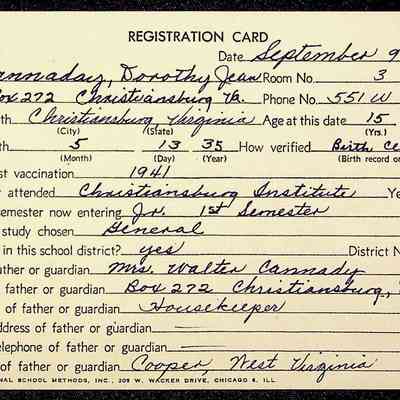 REGISTRATION CARD
Date September 9
annaday, Dorothy Jean Room No. 3
Box 272 Christiansburg Va. Phone No. 551W
th Christiansburg, Virginia Age at this date 15
(City) (State) (Yrs.)
th 5 13 35 How verified Birth Ce
(Month) (Day) (Year) (Birth record or
st vaccination 1941
r attended Christiansburg Institute Ye
semester now entering Jr. 1st Semester
study chosen General
in this school district? yes District N
father or guardian Mrs. Walter Cannady
father or guardian Box 272 Christiansburg,
of father or guardian Housekeeper
ddress of father or guardian
elephone of father or guardian
of father or guardian Cooper, West Virginia
NAL SCHOOL METHODS, INC., 209 W. WACKER DRIVE, CHICAGO 6, ILL.